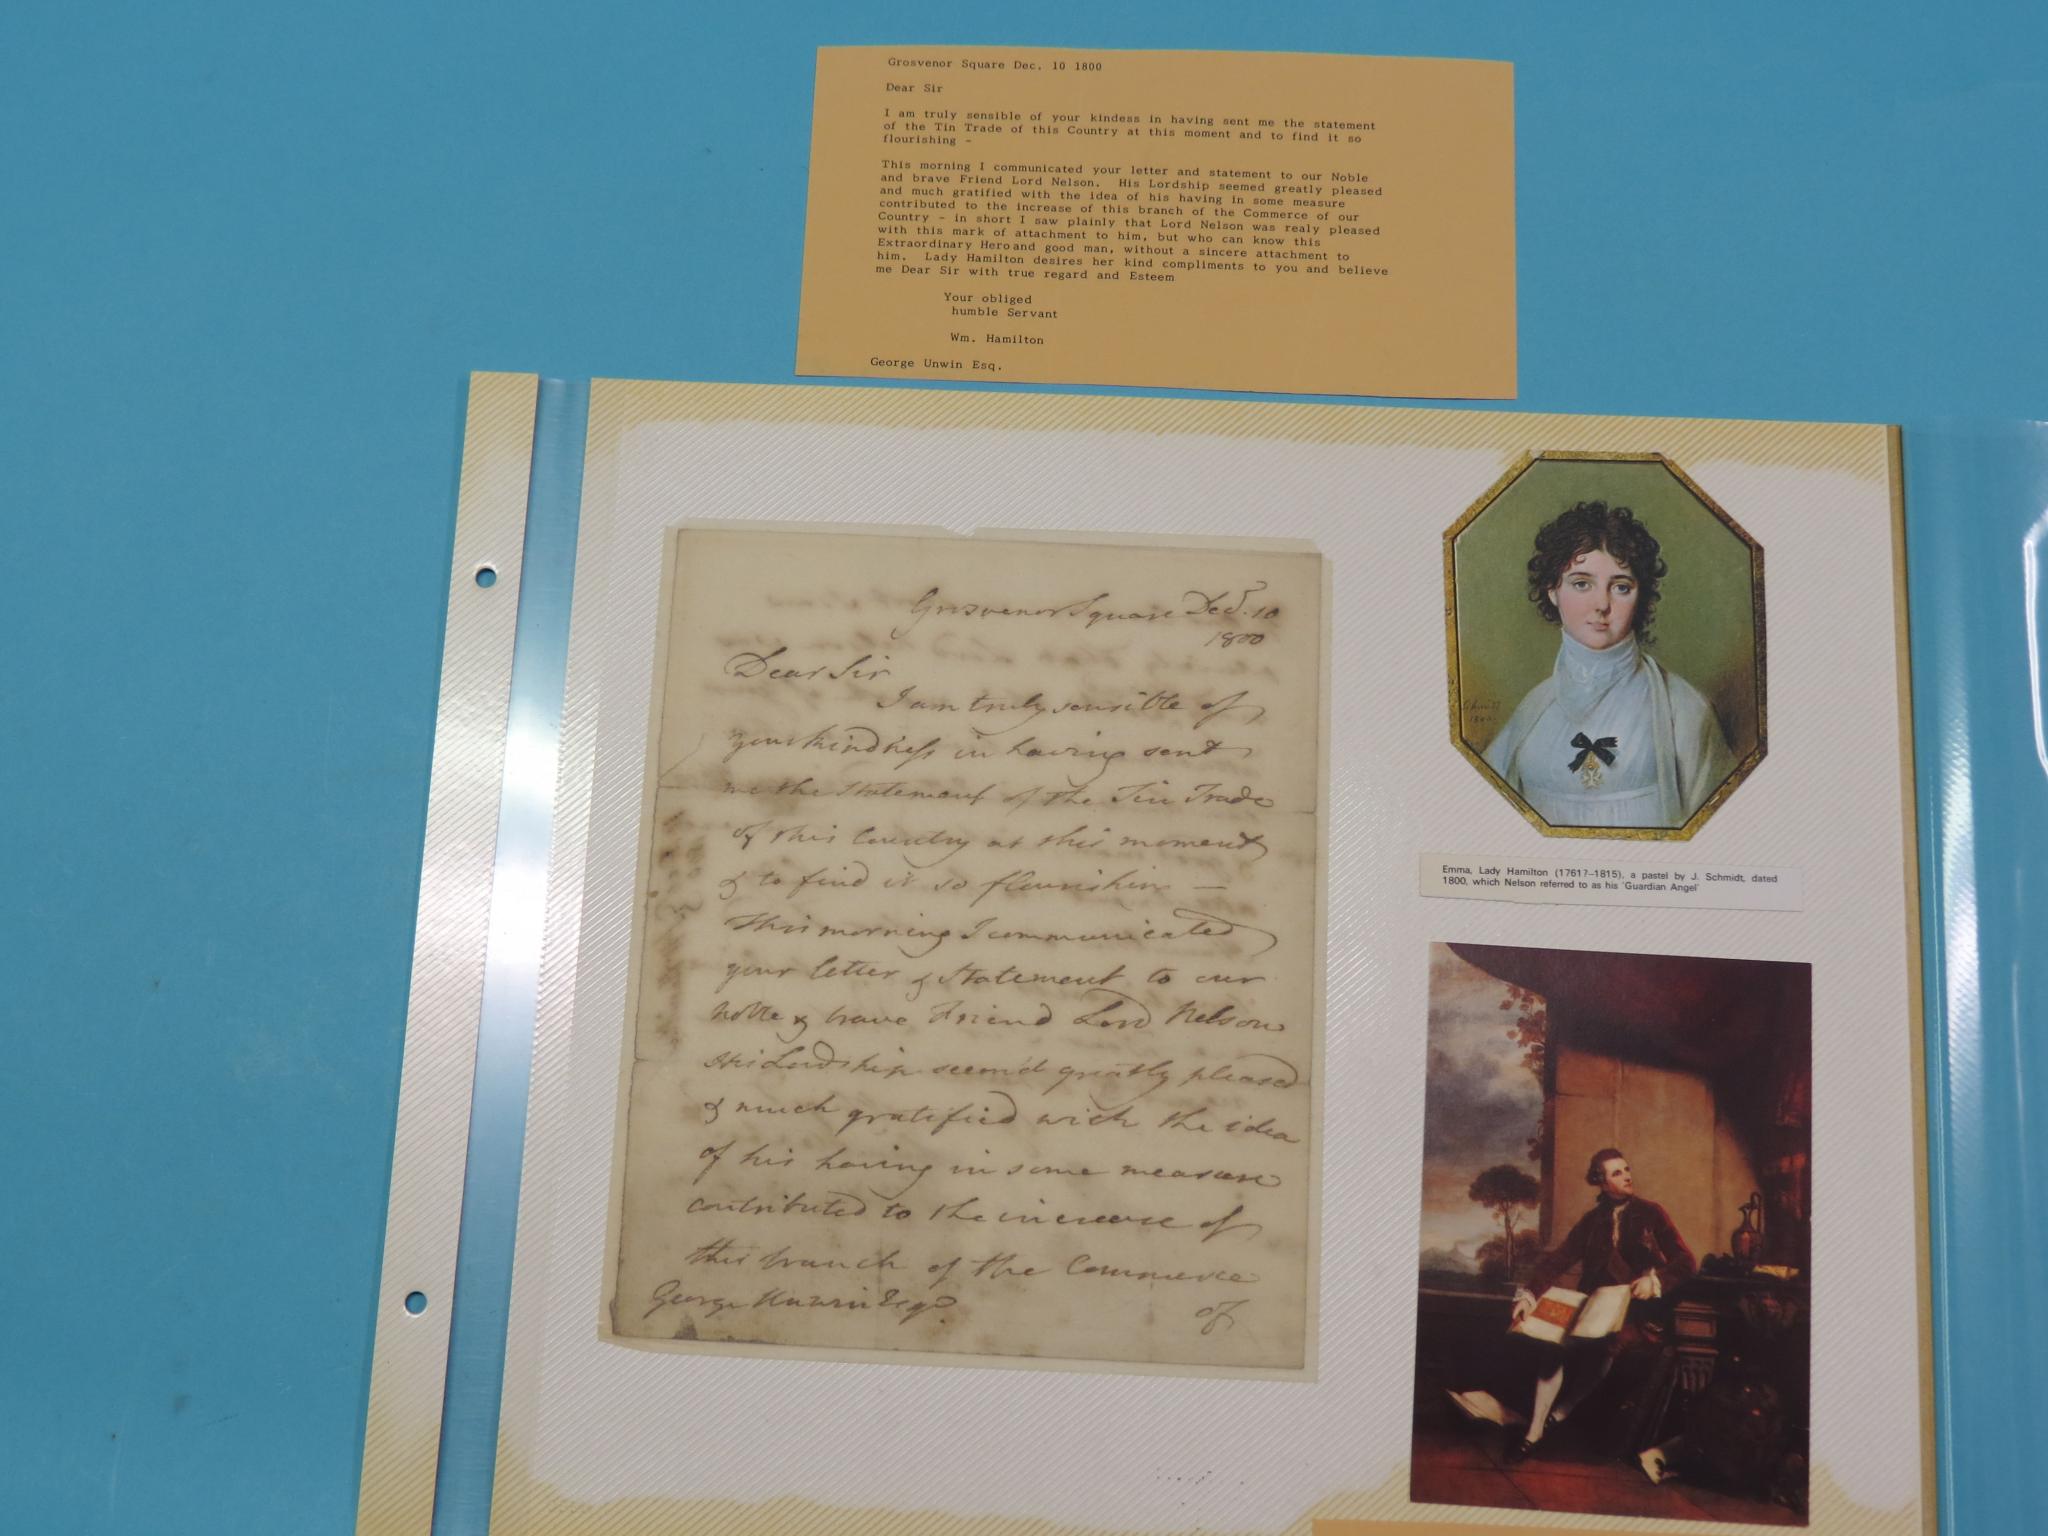 Grosvenor Square Dec. 10 1800
Dear Sir
I am truly sensible of your kindess in having sent me the statement
of the Tin Trade of this Country at this moment and to find it so
flourishing -
This morning I communicated your letter and statement to our Noble
and brave Friend Lord Nelson.  His Lordship seemed greatly pleased
and much gratified with the idea of his having in some measure
contributed to the increase of this branch of the Commerce of our
Country - in short I saw plainly that Lord Nelson was realy pleased
with this mark of attachment to him, but who can know this
Extraordinary Hero and good man, without a sincere attachment to
him.  Lady Hamilton desires her kind compliments to you and believe
me Dear Sir with true regard and Esteem
Your obliged
humble Servant
Wm. Hamilton
George Unwin Esq.
Grosvenor Square Decr. 10
1800
Dear Sir
I am truly sensible of
your kindness in having sent
me the Statement of the Tin Trade
of this Country at this moment
& to find it so flourishing —
This morning I communicated
your letter & Statement to our
Noble & brave Friend Lord Nelson
His Lordship seem'd greatly pleased
& much gratified with the idea
of his having in some measure
contributed to the increase of
this branch of the Commerce
George Unwin Esqr.
of
1800
Emma, Lady Hamilton (1761?–1815), a pastel by J. Schmidt, dated
1800, which Nelson referred to as his 'Guardian Angel'